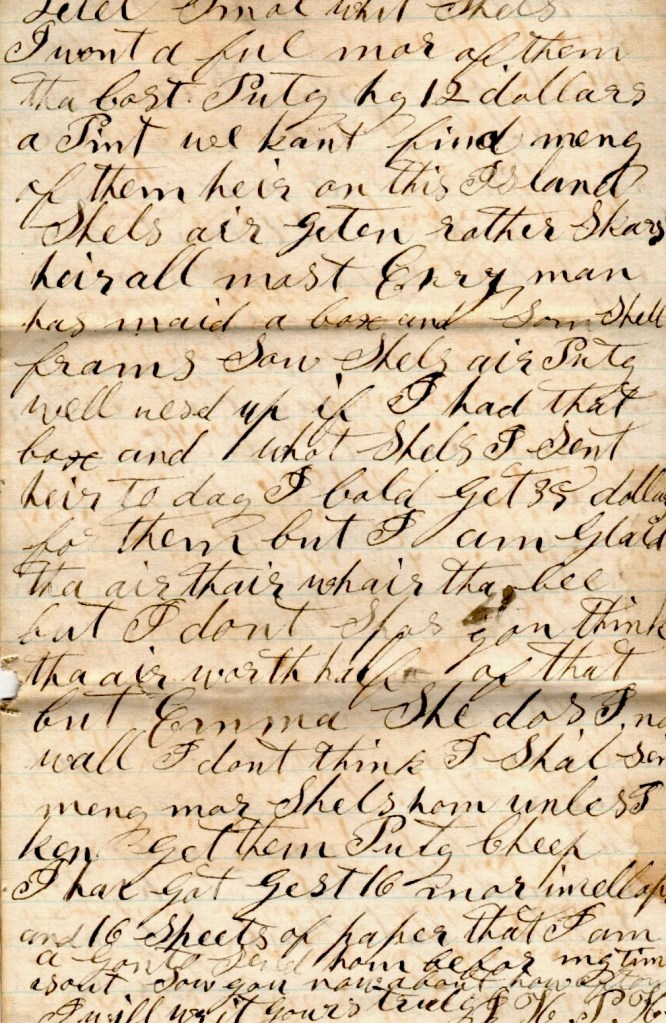 Small whit Shels
I wont a ful mor of them
tha cost Puty hy 12 dollars
a Pint we kant find meny
of them heir on this Island
Shels air geten rather Skars
heir all most Evry man
has maid a box and Som Shell
frams Sow Shels air Puty
well used up if I had that
box and what Shels I Sent
heir to day I cold get 35 dollar
for them but I am Glaid
tha air thair whair tha bee
but I dont Spos you think
tha air worth half of that
but Emma She dos I no
wall I dont think I Shal Sen
meny mor Shels hom unles I
ken get them Puty Cheep
I hav got gest 16 mor invellop
and 16 Sheets of paper that I am
a gon to Send hom befor my tim
is out Sow you now about how often
I will writ yours truly J H P H